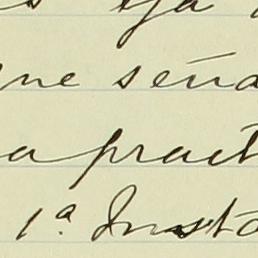 ne seña
a pract
1ª Insta